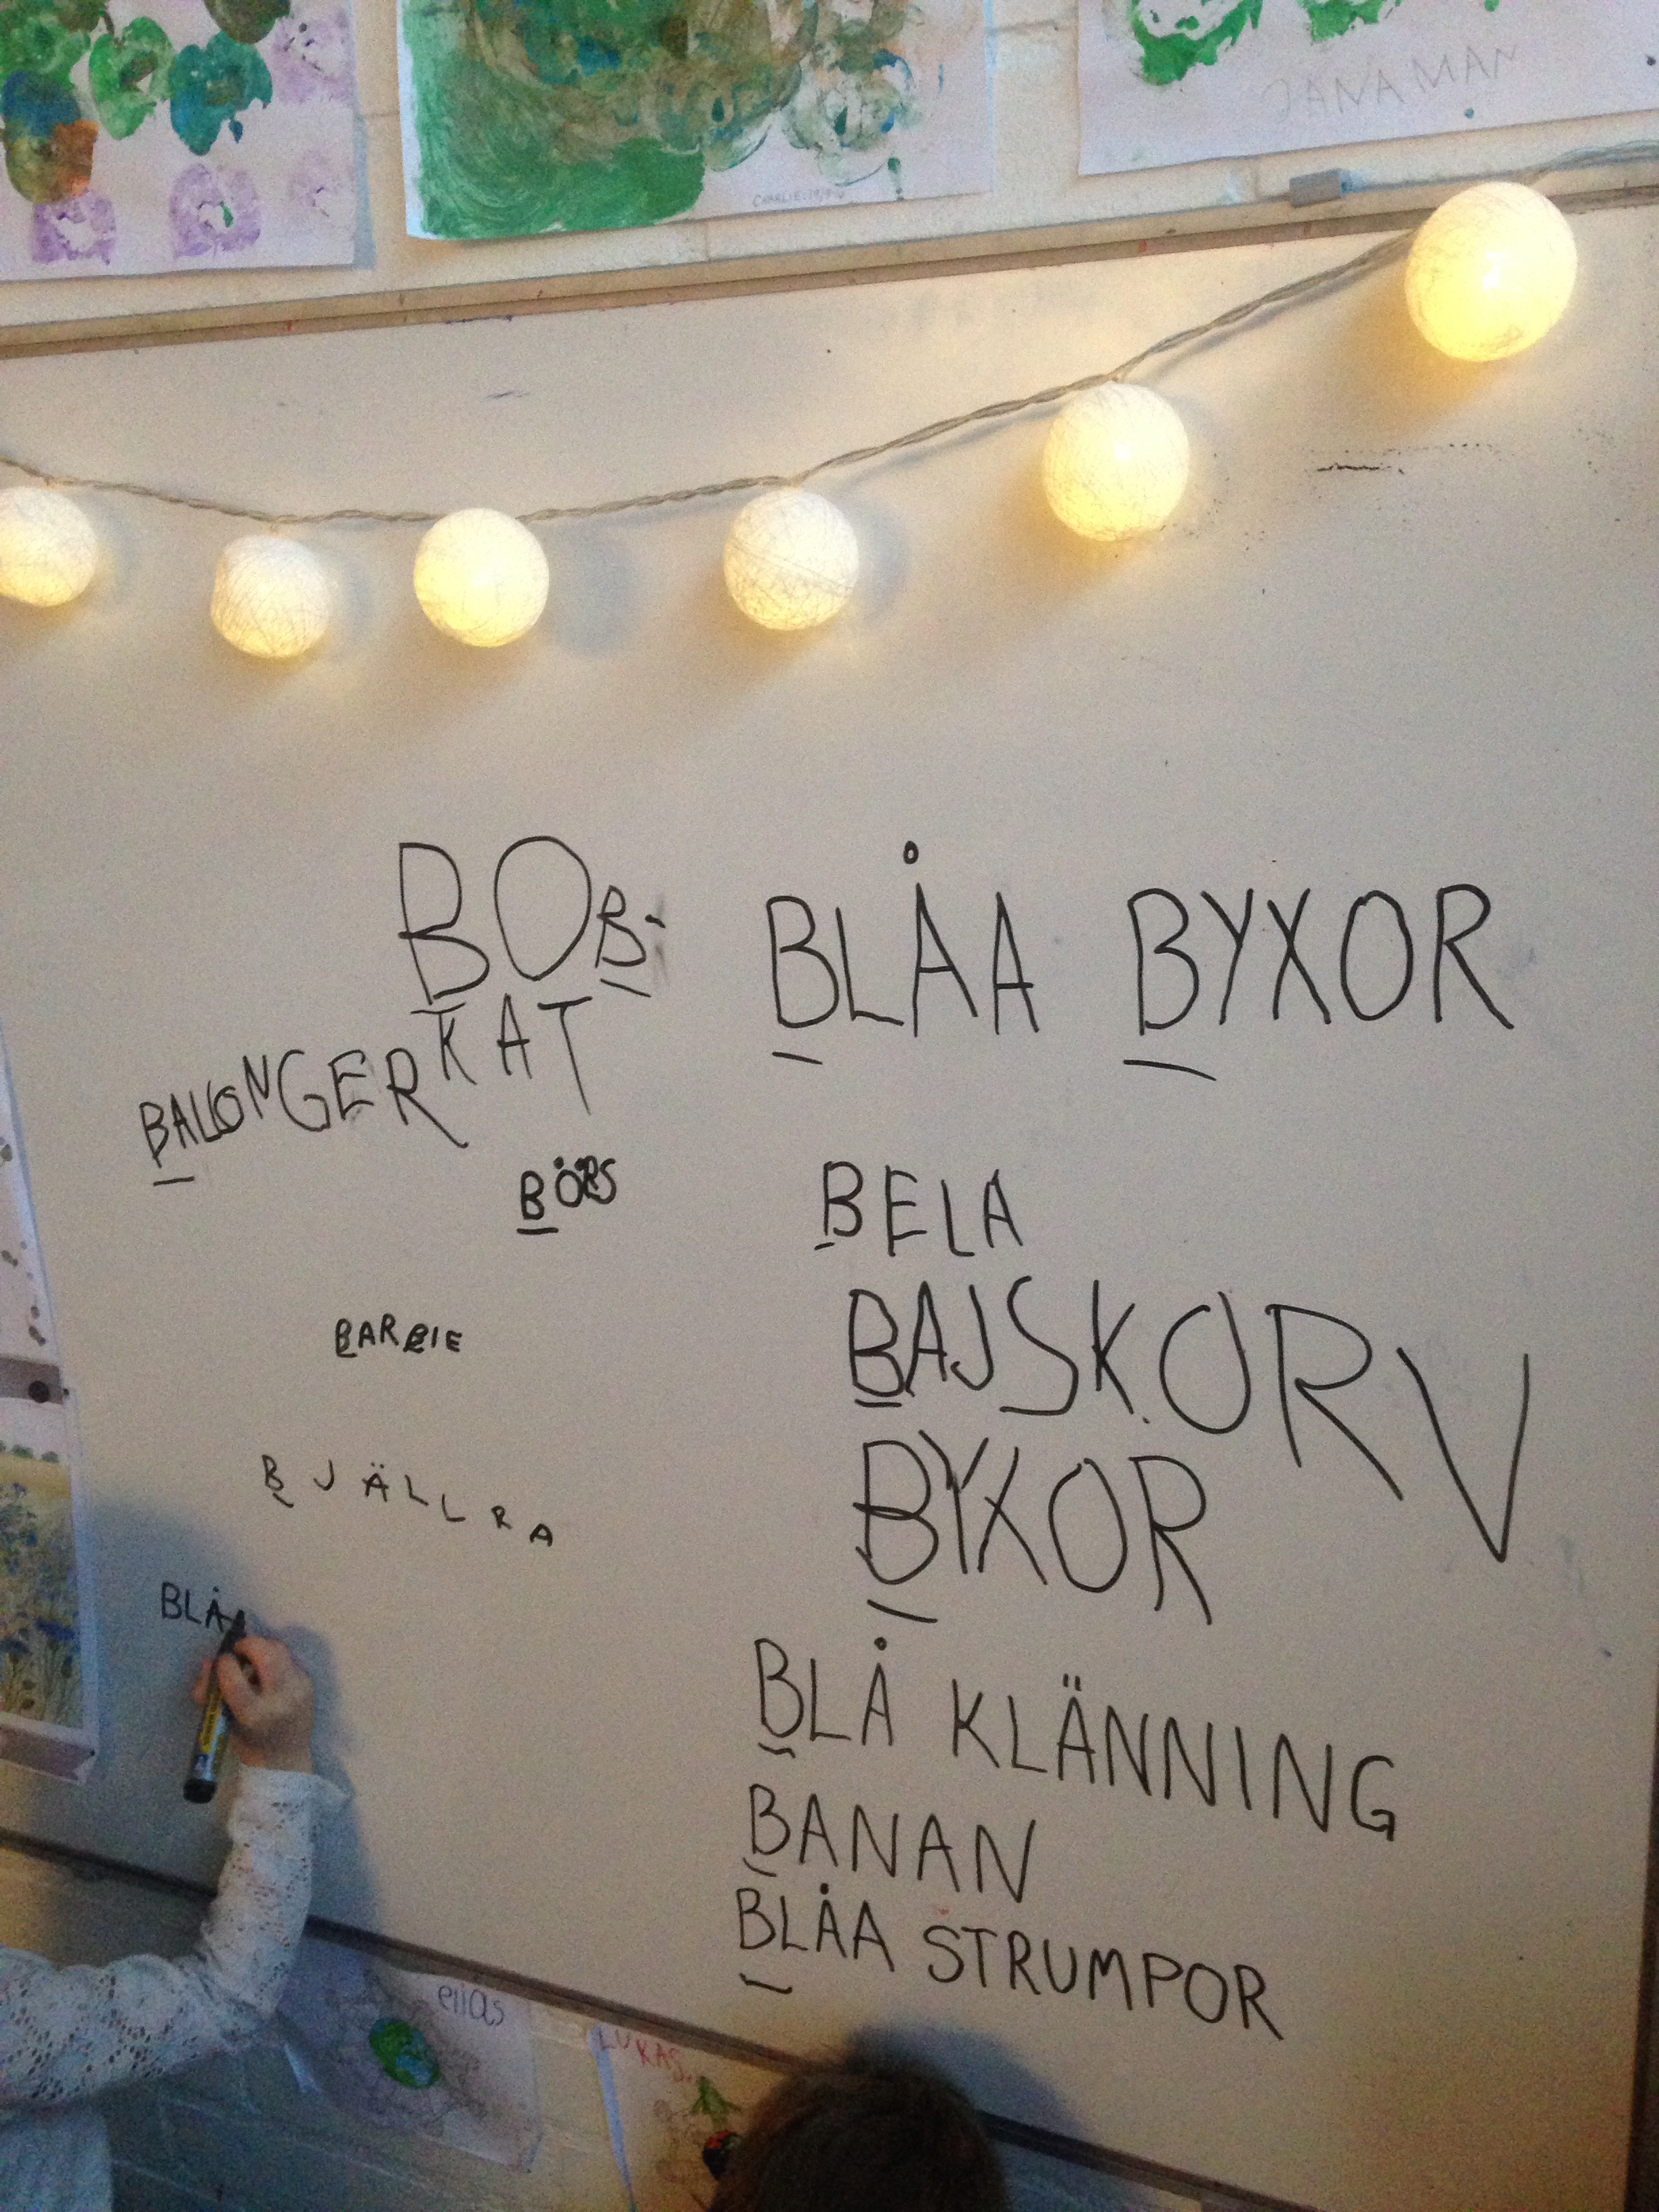 JANA MAN
CHARLIE
BOB-
KAT
BLÅA BYXOR
BALLONGER
BÖRS
BELA
BARBIE
BAJSKORV
BJÄLLRA
BYXOR
BLÅ
BLÅ KLÄNNING
BANAN
BLÅA STRUMPOR
elias
LUKAS